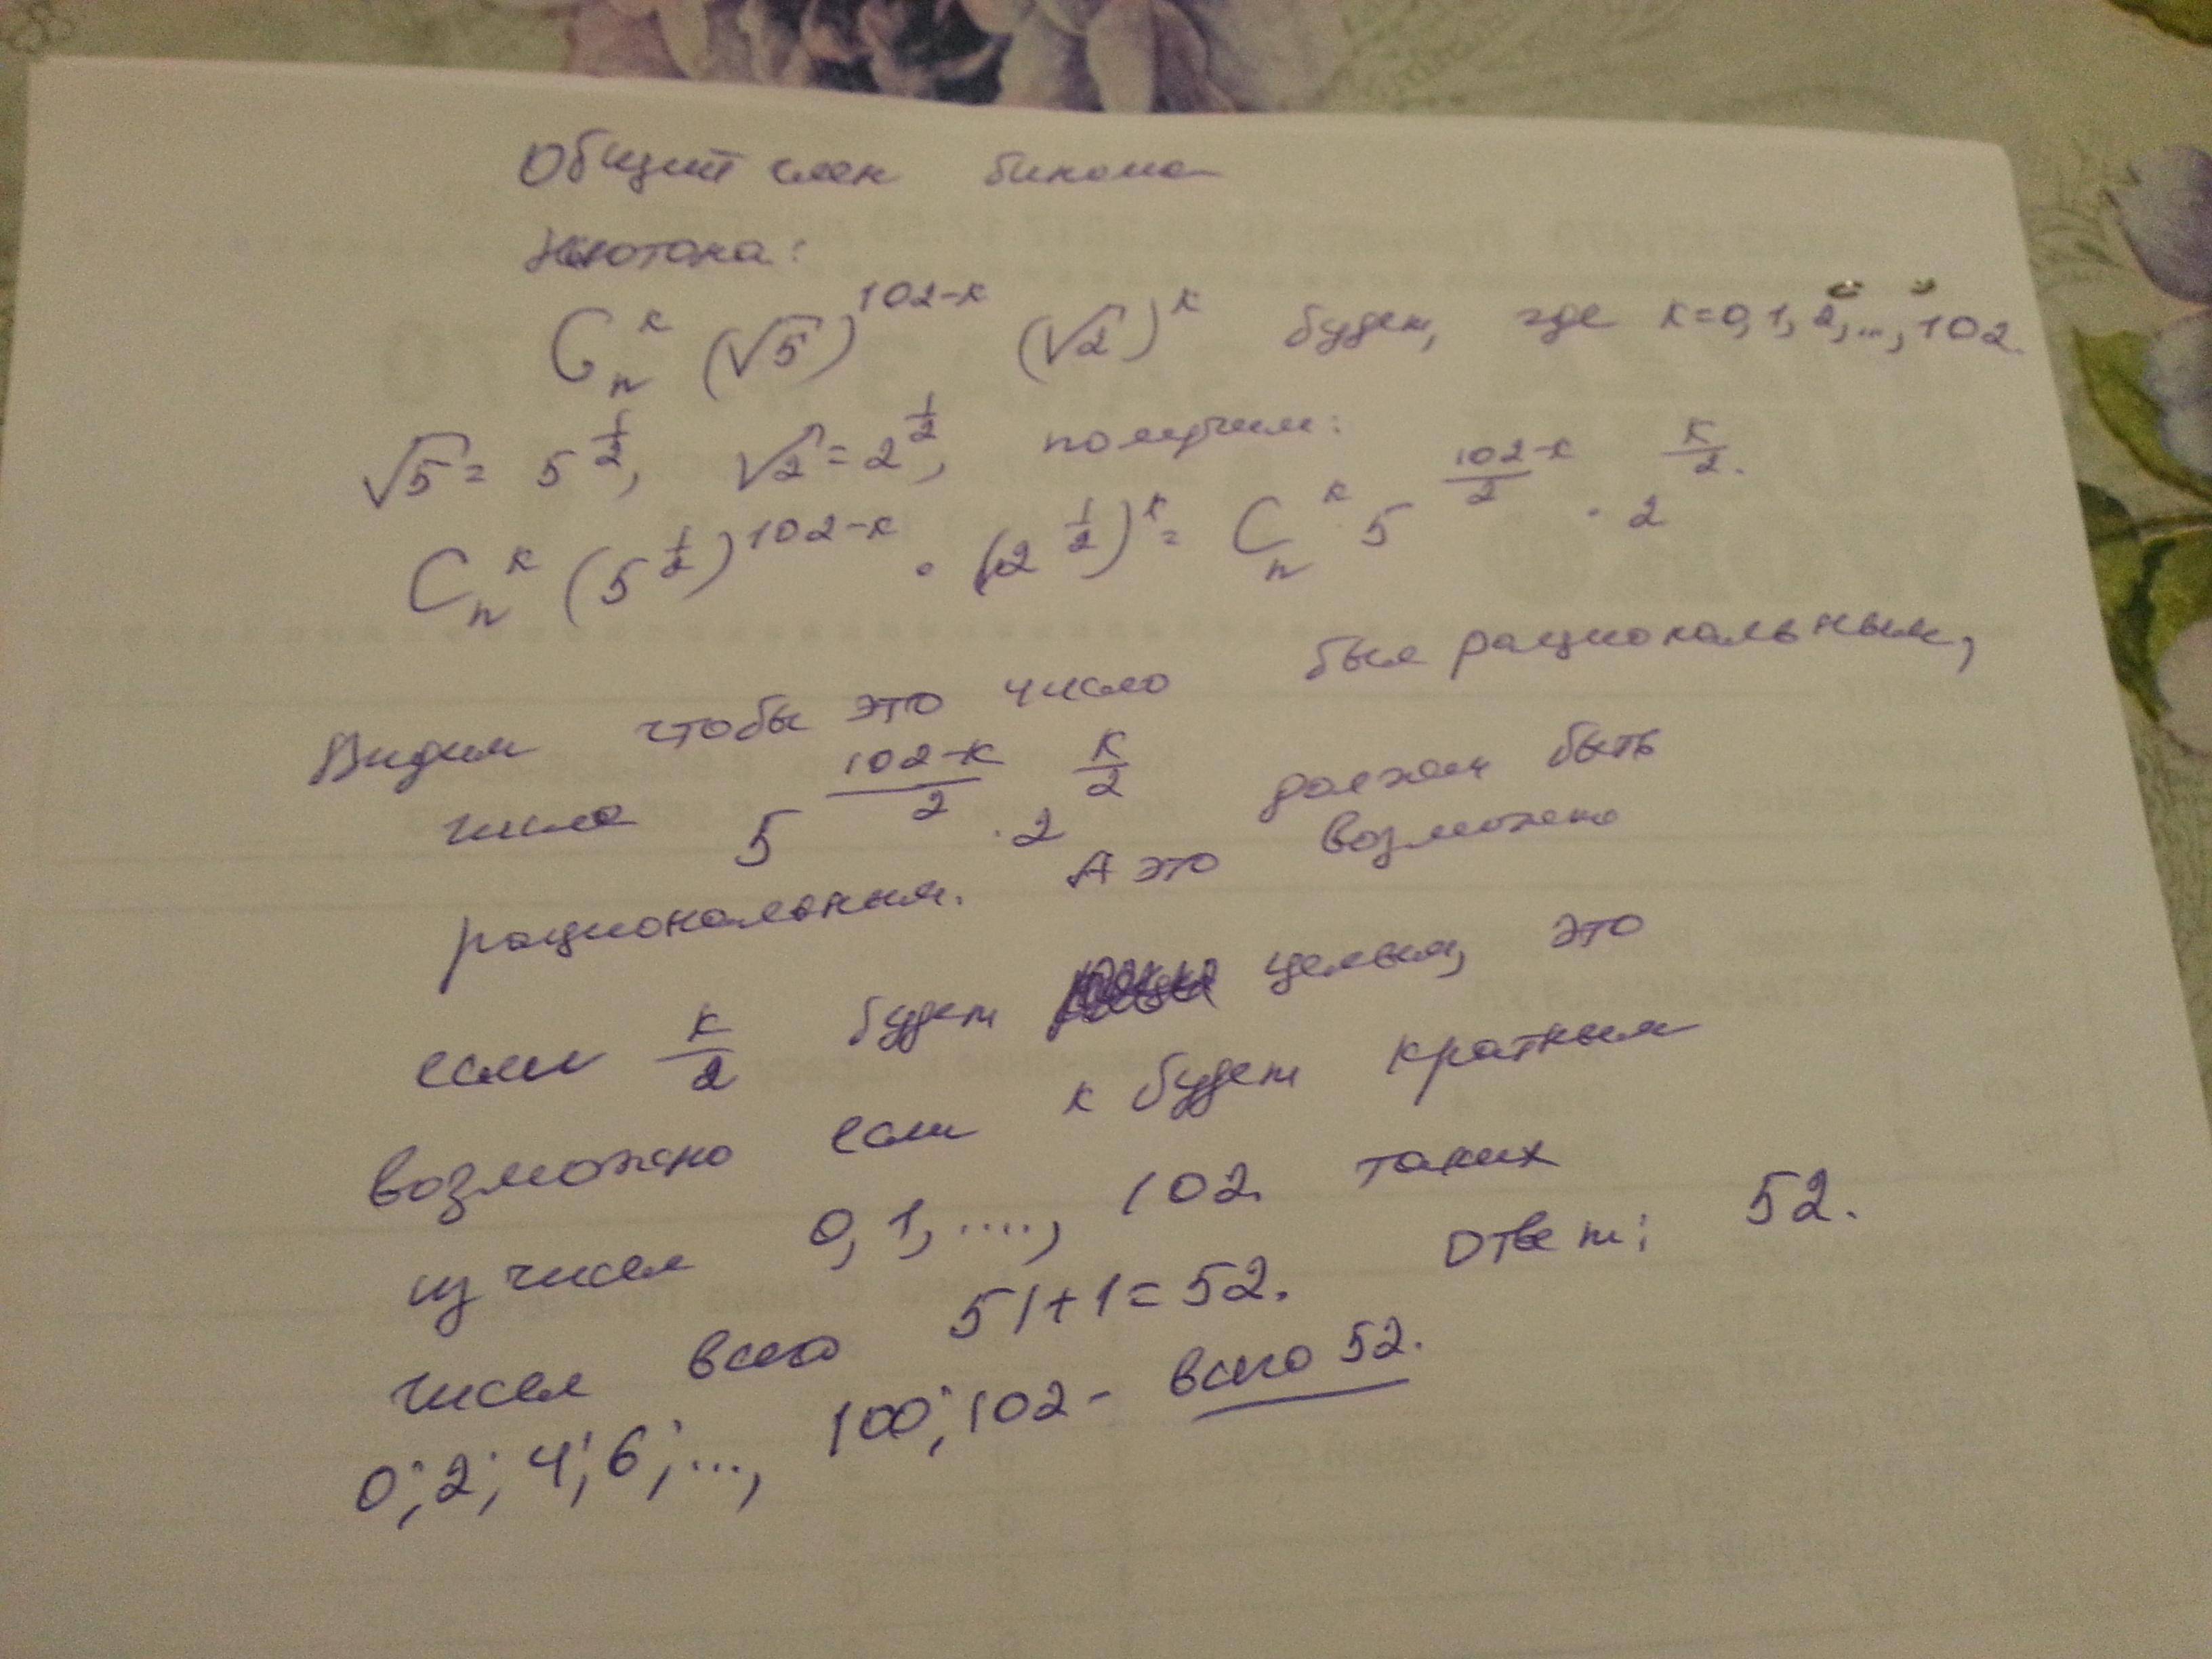 Общий член бинома
Ньютона:
C_n^k (√5)^{102-k} (√2)^k будет, где k=0,1,2,...,102.
√5 = 5^{1/2}, √2 = 2^{1/2}, получим:
C_n^k (5^{1/2})^{102-k} · (2^{1/2})^k = C_n^k 5^{(102-k)/2} · 2^{k/2}.
Видим чтобы это число был рациональным,
число 5^{(102-k)/2} · 2^{k/2} должен быть
рациональным. А это возможно
если k/2 будет целым, это
возможно если k будет кратным
из чисел 0, 1, ...., 102. таких
чисел всего 51+1=52. Ответ: 52.
0; 2; 4; 6; ..., 100; 102 - всего 52.